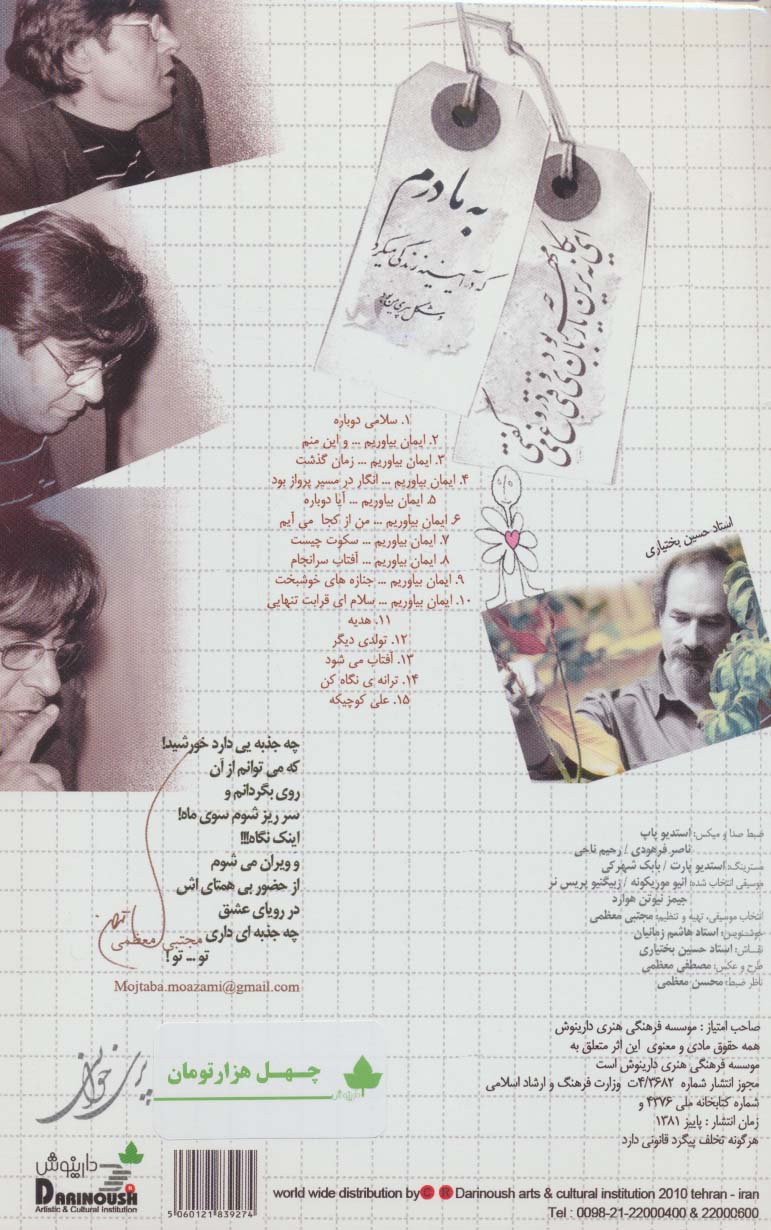 به مادرم
که در آیینه زندگی میکرد
و شکل پیری من بود
۱. سلامی دوباره
۲. ایمان بیاوریم ... و این منم
۳. ایمان بیاوریم ... زمان گذشت
۴. ایمان بیاوریم ... انگار در مسیر پرواز بود
۵. ایمان بیاوریم ... آیا دوباره
۶. ایمان بیاوریم ... من از کجا می آیم
۷. ایمان بیاوریم ... سکوت چیست
۸. ایمان بیاوریم ... آفتاب سرانجام
۹. ایمان بیاوریم ... جنازه های خوشبخت
۱۰. ایمان بیاوریم ... سلام ای قرابت تنهایی
۱۱. هدیه
۱۲. تولدی دیگر
۱۳. آفتاب می شود
۱۴. ترانه ی نگاه کن
۱۵. علی کوچیکه
استاد حسین بختیاری
چه جذبه یی دارد خورشید!
که می توانم از آن
روی بگردانم و
سر ریز شوم سوی ماه!
اینک نگاه!!!
و ویران می شوم
از حضور بی همتای اش
در رویای عشق
چه جذبه ای داری
تو ... تو !
مجتبی معظمی
Mojtaba.moazami@gmail.com
ضبط صدا و میکس: استدیو پاپ
ناصر فرهودی / رحیم ناجی
مسترینگ: استدیو پارت / بابک شهرکی
موسیقی انتخاب شده: انیو موریکونه / زبیگنیو پریس نر
جیمز نیوتن هوارد
انتخاب موسیقی، تهیه و تنظیم: مجتبی معظمی
خوشنویس: استاد هاشم زمانیان
نقاش: استاد حسین بختیاری
طرح و عکس: مصطفی معظمی
ناظر ضبط: محسن معظمی
صاحب امتیاز : موسسه فرهنگی هنری دارینوش
همه حقوق مادی و معنوی این اثر متعلق به
موسسه فرهنگی هنری دارینوش است
مجوز انتشار شماره ۴/۳۶۸۲ت وزارت فرهنگ و ارشاد اسلامی
شماره کتابخانه ملی ۴۳۷۶ و
زمان انتشار : پاییز ۱۳۸۱
هرگونه تخلف پیگرد قانونی دارد
چـهـل هزارتومان
دارینوش
پری خوانی
دارینوش
DARINOUSH
Artistic & Cultural Institution
5 060121 839274
world wide distribution by © ® Darinoush arts & cultural institution 2010 tehran - iran
Tel : 0098-21-22000400 & 22000600